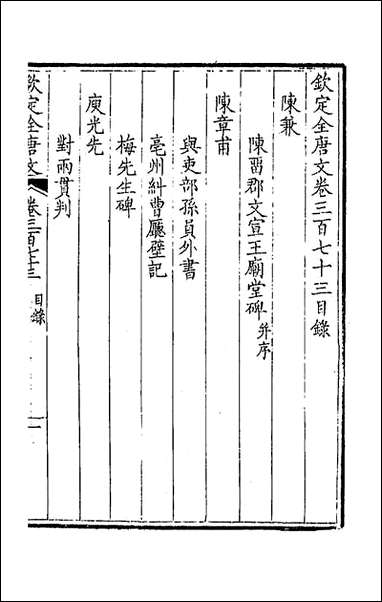 欽定全唐文卷三百七十三目錄
陳兼
陳畱郡文宣王廟堂碑并序
陳章甫
與吏部孫員外書
亳州糾曹廳壁記
梅先生碑
庾光先
對兩貫判
欽定全唐文 卷三百七十三 目錄 一